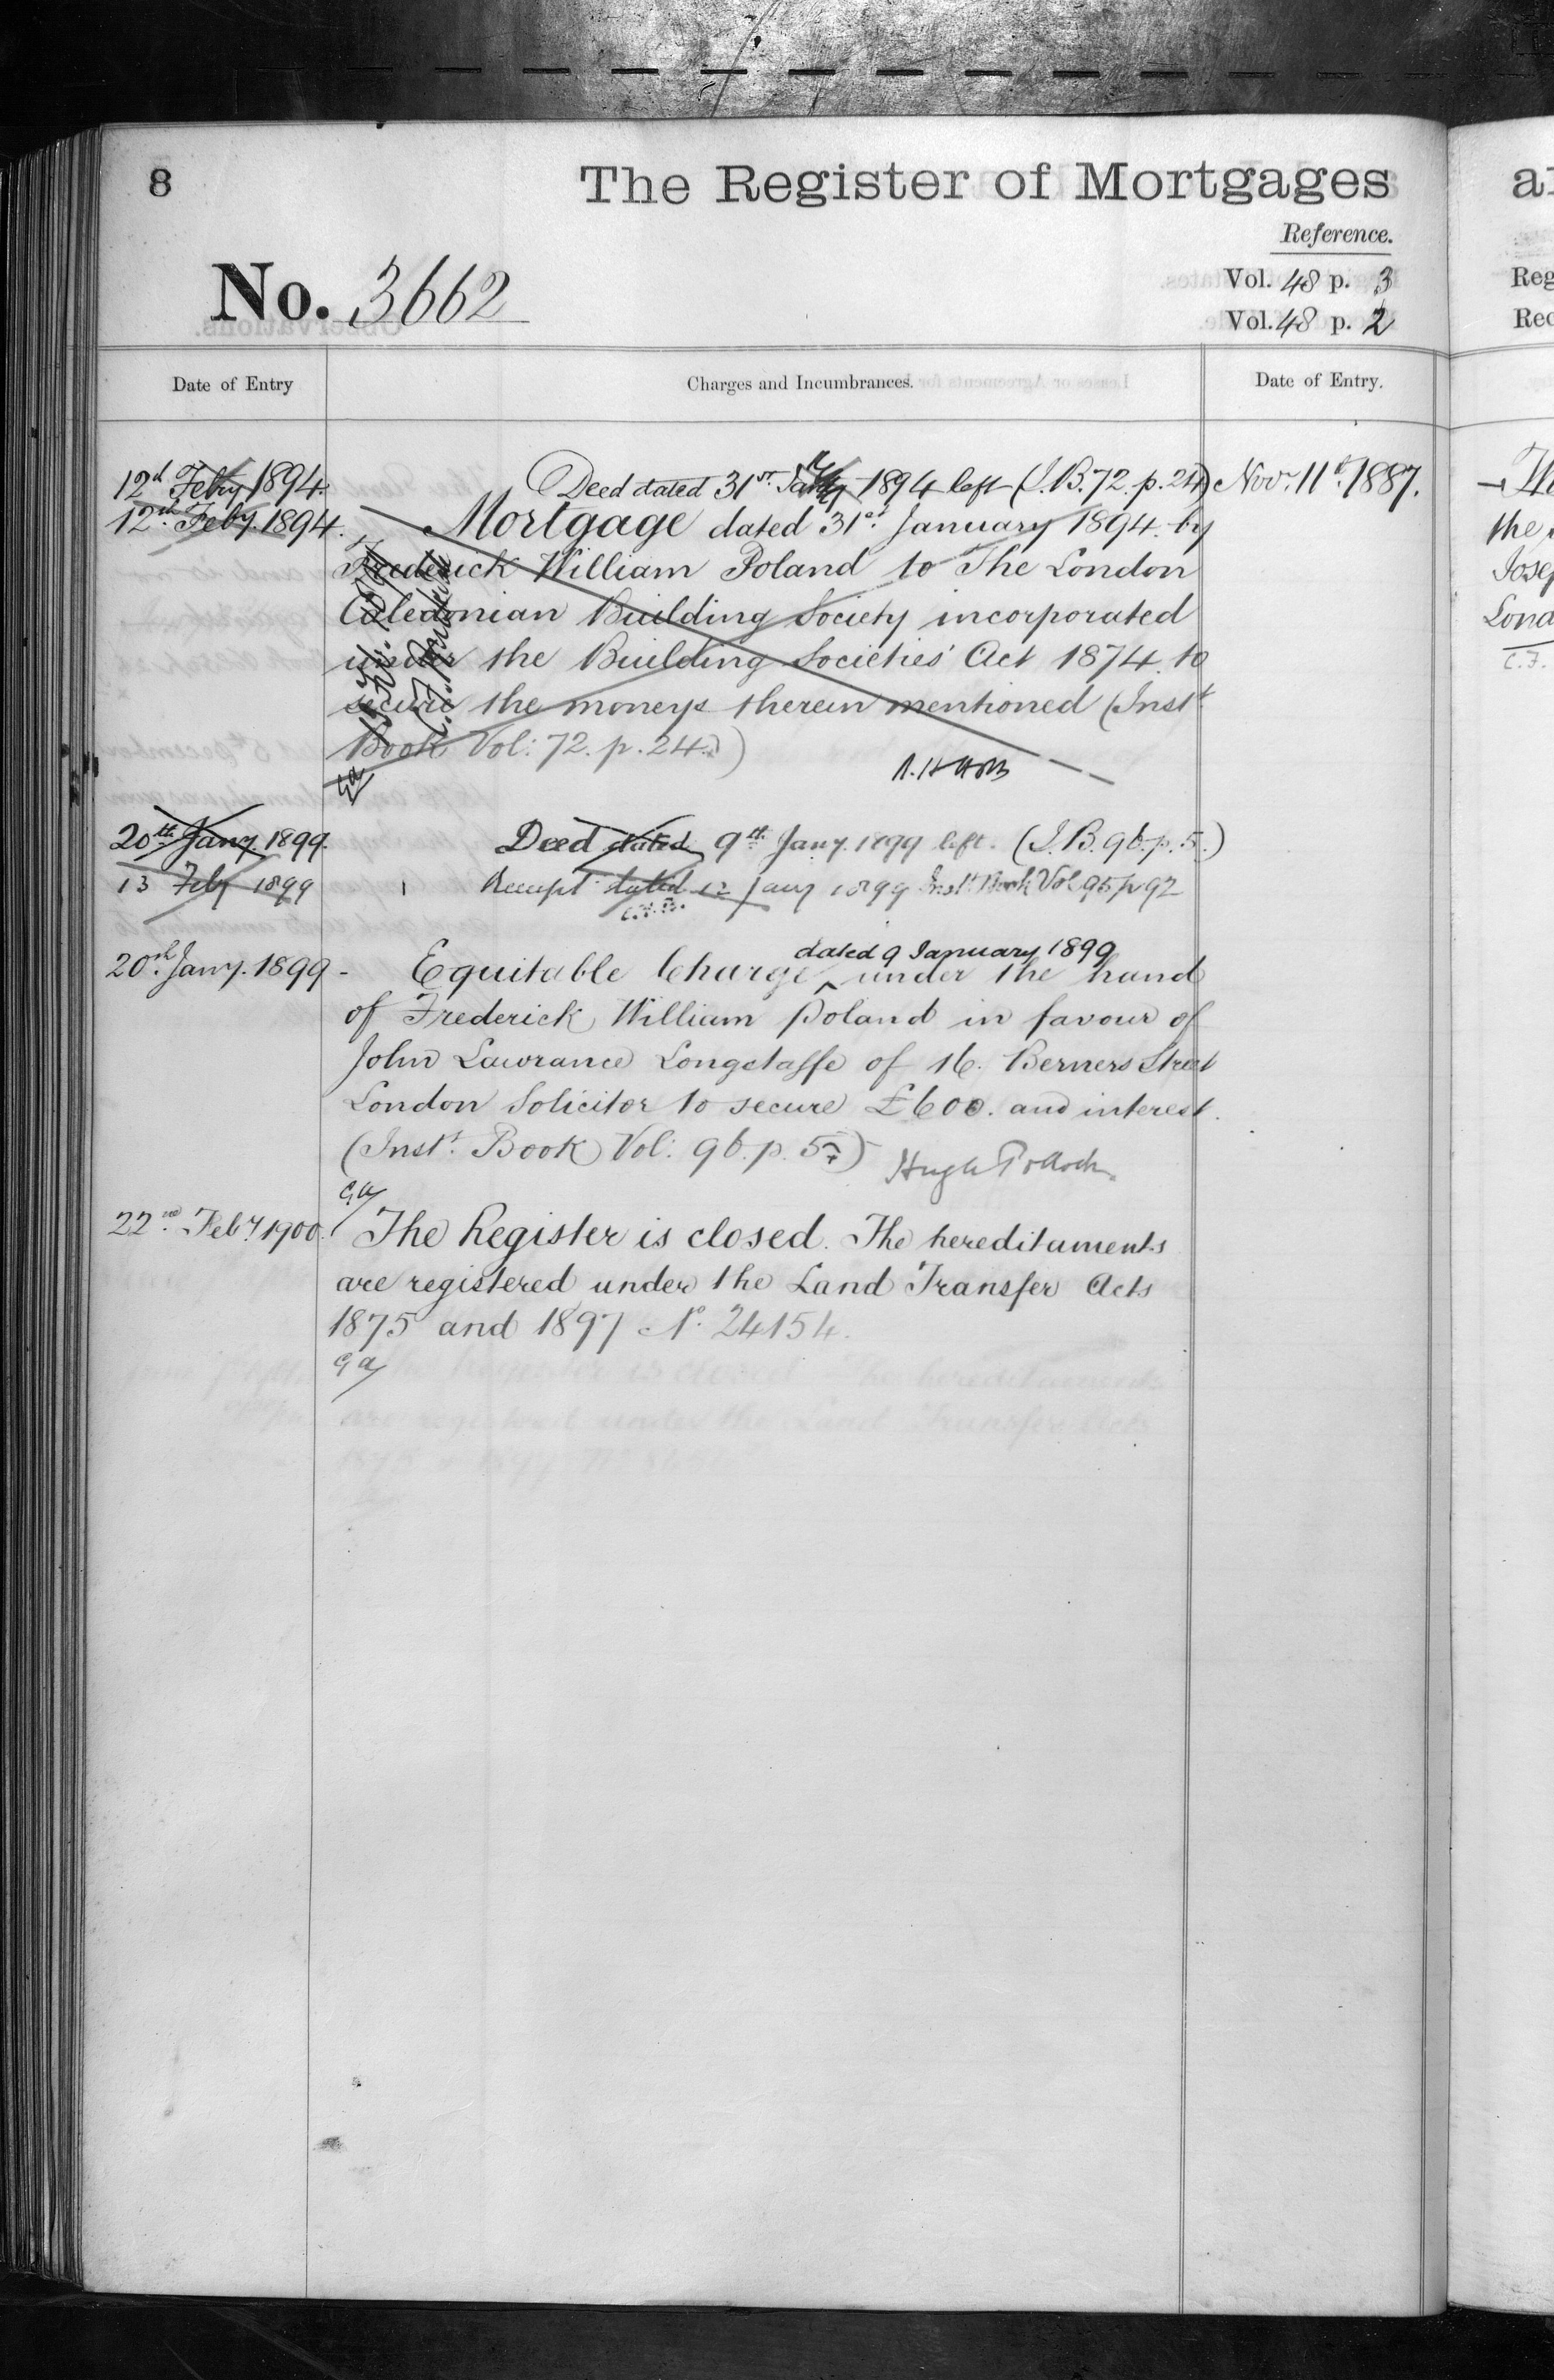 8
The Register of Mortgages
Reference.
No. 3662
Vol. 48 p. 3
Vol. 48 p. 2
Date of Entry
Charges and Incumbrances.
Date of Entry.
12th Feby 1894. Deed dated 31st Jany 1894 left (I.B. 72. p. 24) Novr. 11th. 1887.
12th Feby. 1894. Mortgage dated 31st January 1894 by
Frederick William Poland to The London
Caledonian Building Society incorporated
under the Building Societies' Act 1874 to
secure the moneys therein mentioned (Inst.t
Book Vol: 72. p. 24.)
20th Jany. 1899. Deed dated 9th Jany. 1899 left. (I.B. 96. p. 5.)
13 Feby 1899 Receipt dated 12 Jany 1899 Inst.t Book Vol 95 p 92
C.H.B.
dated 9 January 1899
20th Jany. 1899 - Equitable Charge ^ under the hand
of Frederick William Poland in favour of
John Lawrance Longstaffe of 16. Berners Street
London Solicitor to secure £600. and interest.
(Inst.t Book Vol: 96. p. 5) Hugh Pollock.
22nd Feby 1900. The Register is closed. The hereditaments
are registered under the Land Transfer Acts
1875 and 1897 No. 24154.